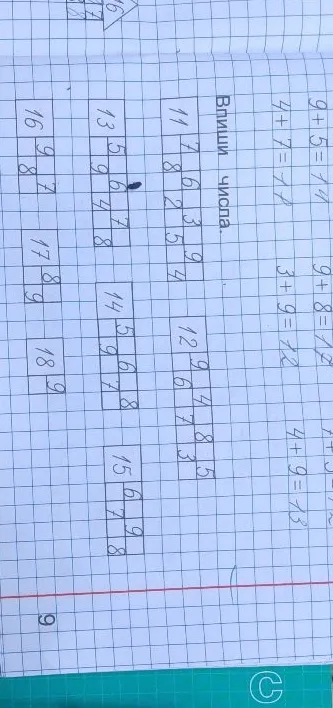 9+5=14 9+8=17
4+7=11 3+9=12 4+9=13
Впиши числа.
11 7 6 3 9 12 9 4 8 5
8 2 5 4 6 7 3
13 5 6 7 14 5 6 8 15 6 9
9 4 8 9 7 7 8
16 9 7 17 8 18 9
8 9
9